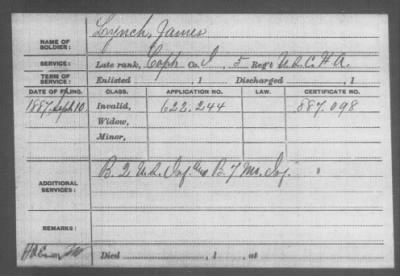 Lynch, James
NAME OF SOLDIER:
SERVICE: Late rank, Corpl Co. I, 5 Reg't U.S.C.H.A.
TERM OF SERVICE: Enlisted , 1 Discharged , 1
DATE OF FILING. CLASS. APPLICATION NO. LAW. CERTIFICATE NO.
1887, Sept 10, Invalid, 622.244 887.098
Widow,
Minor,
ADDITIONAL SERVICES: B. 2 U.S. Inf. B. 7 Mo. Inf.
REMARKS:
Died , 1 , at